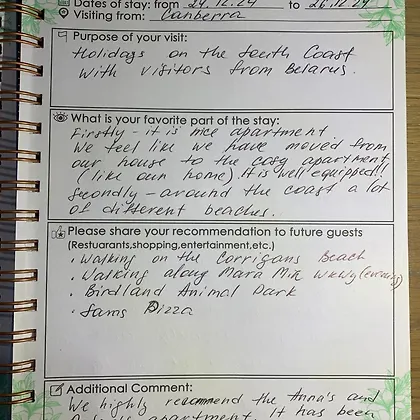 Dates of stay: from 24.12.24 to 26.12.24
Visiting from: Canberra
Purpose of your visit:
Holidays on the South Coast
with visitors from Belarus.
What is your favorite part of the stay:
Firstly - it is nice apartment
We feel like we have moved from
our house to the cosy apartment
(like our own home). It is well equipped!!
Secondly - around the coast a lot
of different beaches.
Please share your recommendation to future guests
(Restuarants,shopping,entertainment,etc.)
• Walking on the Corrigans Beach
• Walking along Mara Mia (evening)
• Birdland Animal Park
• Sams Pizza
Additional Comment:
We highly recommend the Anna's and
apartment. It has been